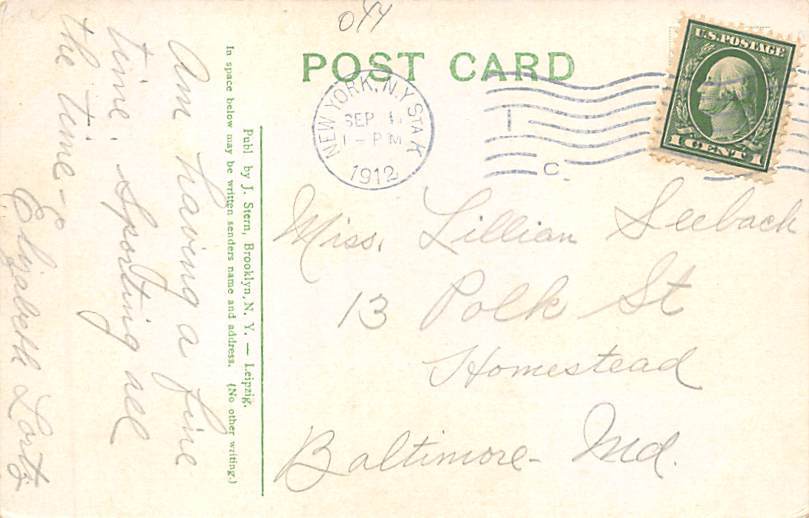 044
POST CARD
U.S. POSTAGE
1 CENT 1
NEW YORK, N.Y. STA K
SEP
1 - PM
1912
C.
Miss. Lillian Seebach
13 Polk St
Homestead
Baltimore - Md.
Publ by J. Stern, Brooklyn, N. Y. — Leipzig.
In space below may be written senders name and address. (No other writing.)
Am having a fine
time. Sporting all
the time -
Elizabeth Lortz